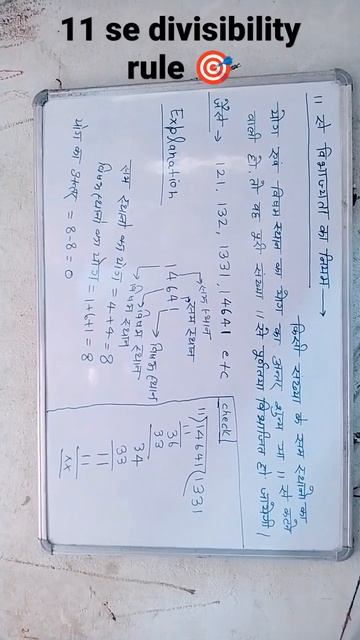 11 se divisibility
rule 🎯
11 से विभाज्यता का नियम → किसी संख्या के सम स्थानों का
योग एवं विषम स्थान का योग का अन्तर शून्य या 11 से कटने
वाली हो, तो वह पूरी संख्या 11 से पूर्णतया विभाजित हो जायेगी।
जैसे → 121, 132, 1331, 14641 etc
Explanation
14641
सम स्थान
सम स्थान
विषम स्थान
विषम स्थान
विषम स्थान
सम स्थानों का योग = 4+4 = 8
विषम स्थानों का योग = 1+6+1 = 8
योग का अन्तर = 8-8 = 0
check
11)14641(1331
11
36
33
34
33
11
11
xx